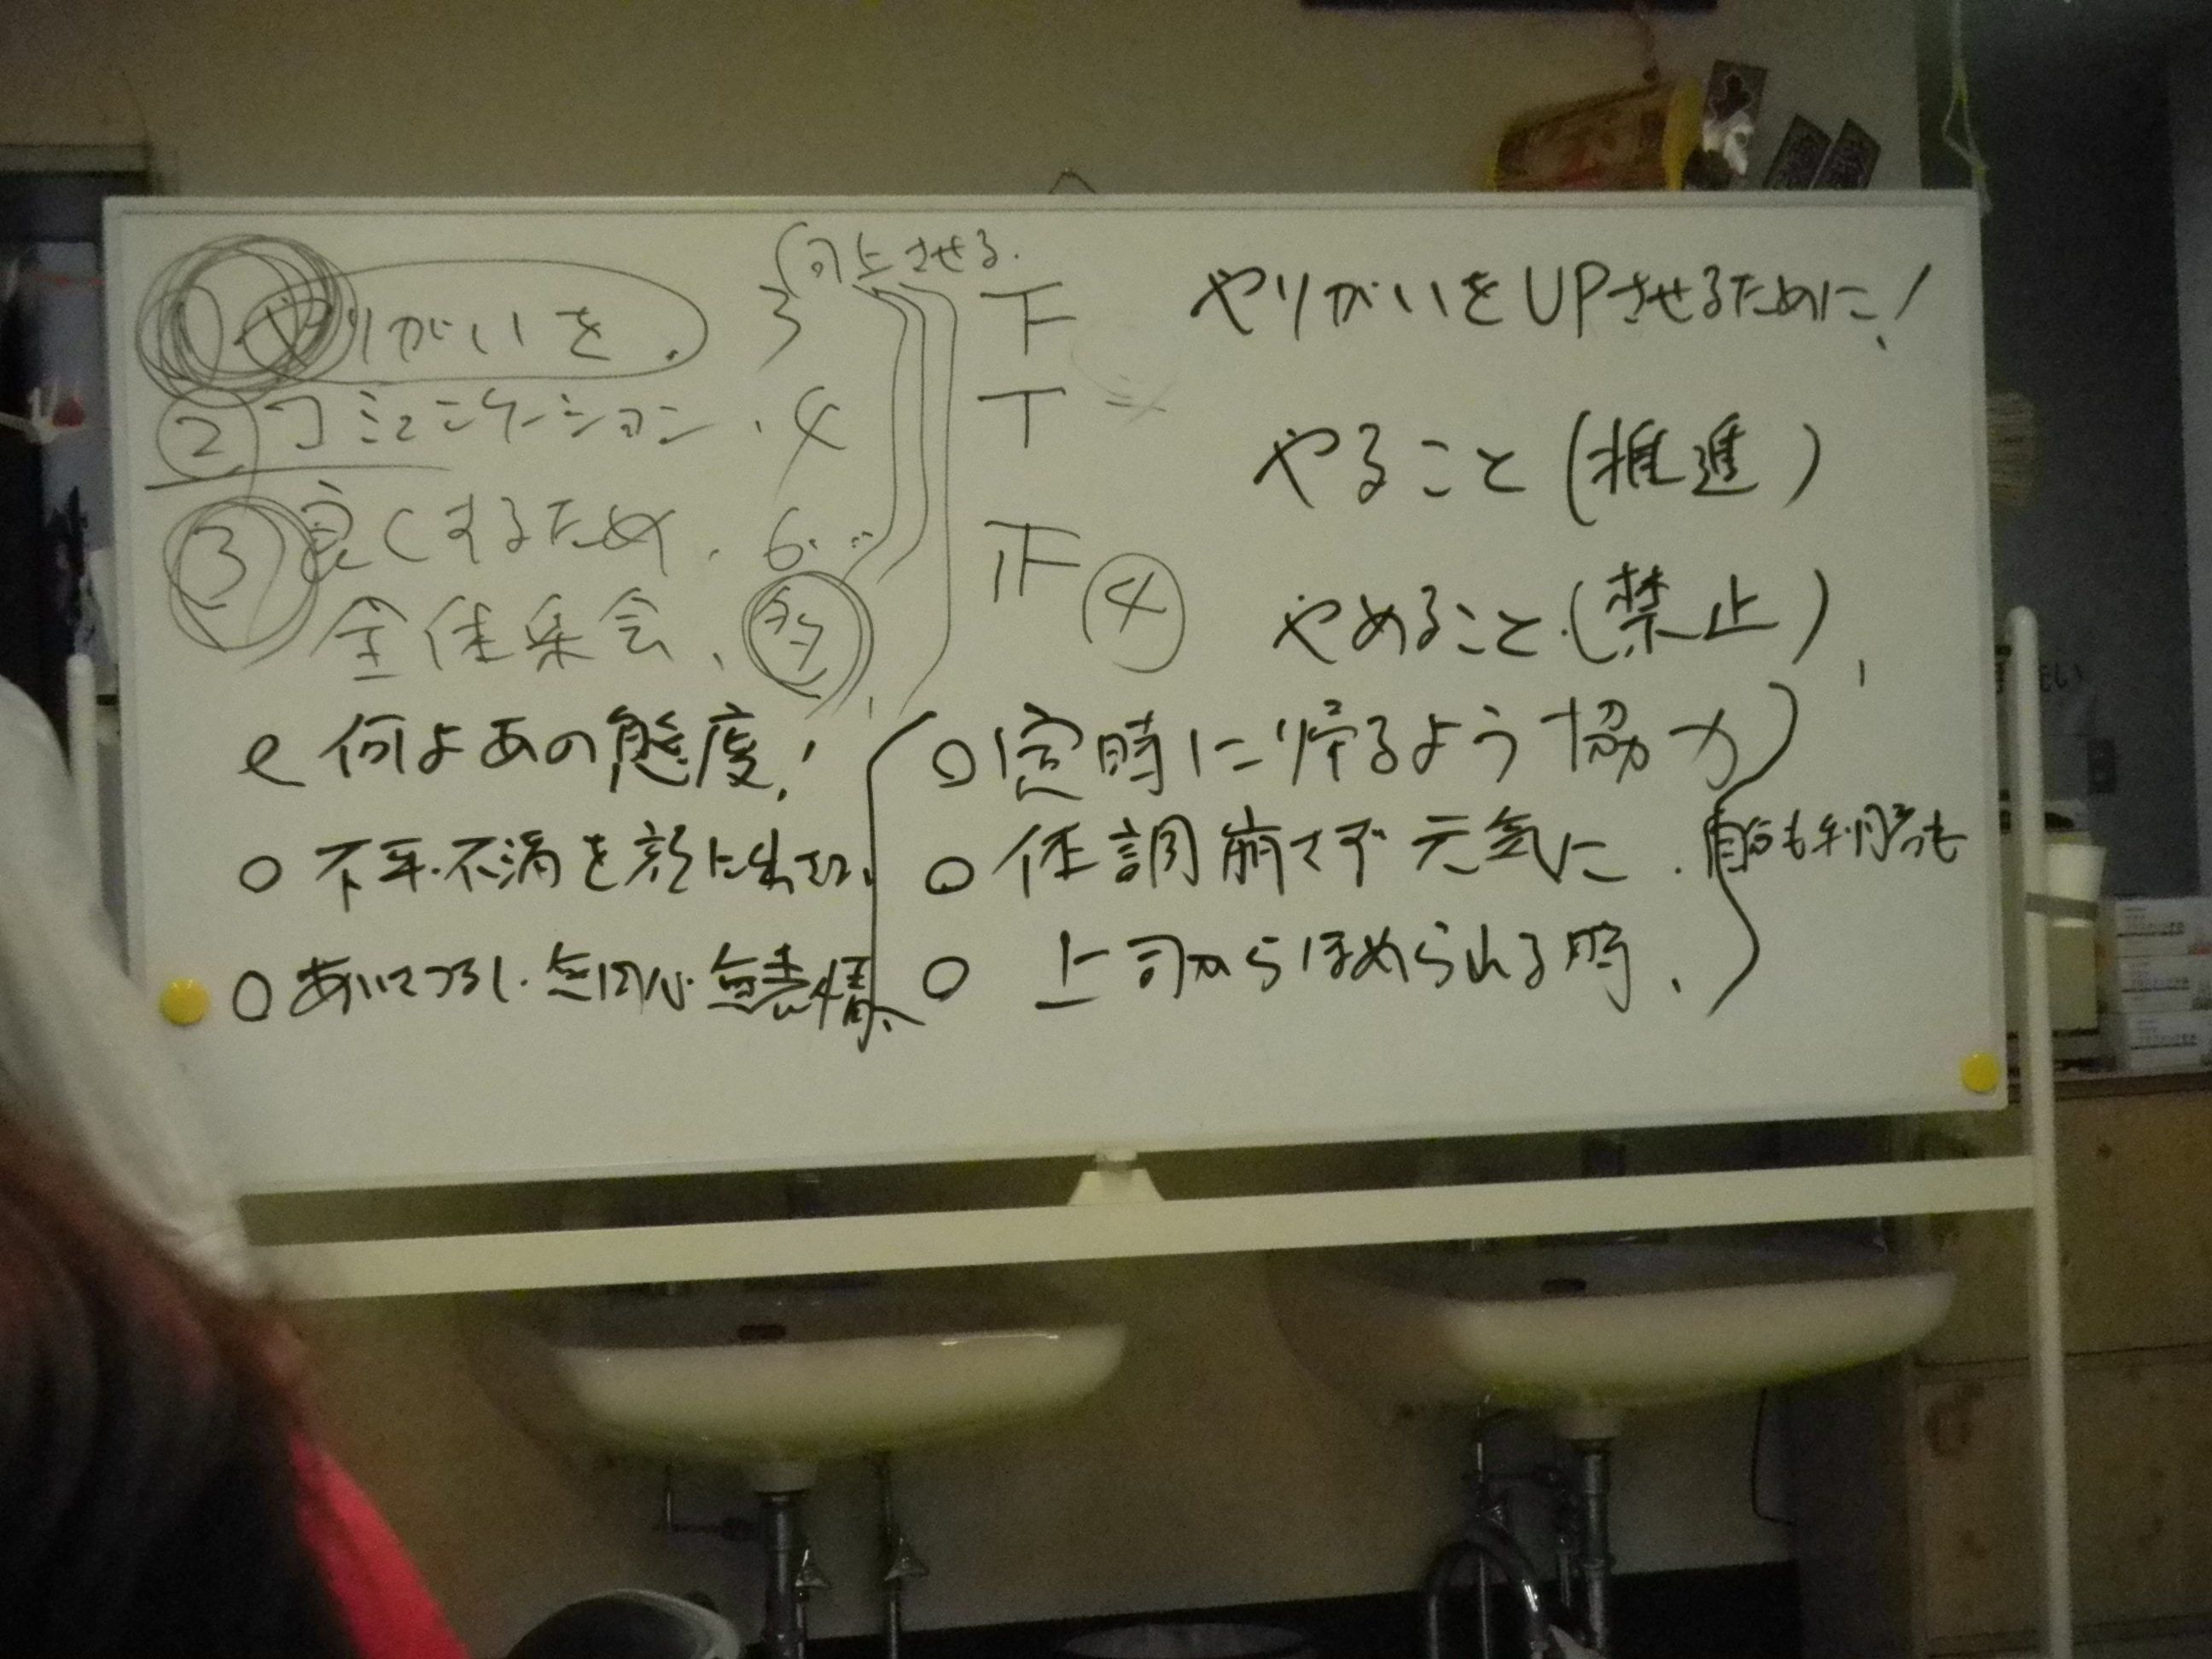 向上させる.
① やりがいを. 3 下
② コミュニケーション. 4 T
③ 良くするため. 6. 正 ④
全体集会、
やりがいをUPさせるために!
やること(推進)
やめること.(禁止)
何よあの態度!
○ 不平・不満を顔に出さない
○ あいさつなし・無関心・無表情
○ 定時に帰るよう協力
○ 体調崩さず元気に. 自分も利用者も
○ 上司からほめられる時、